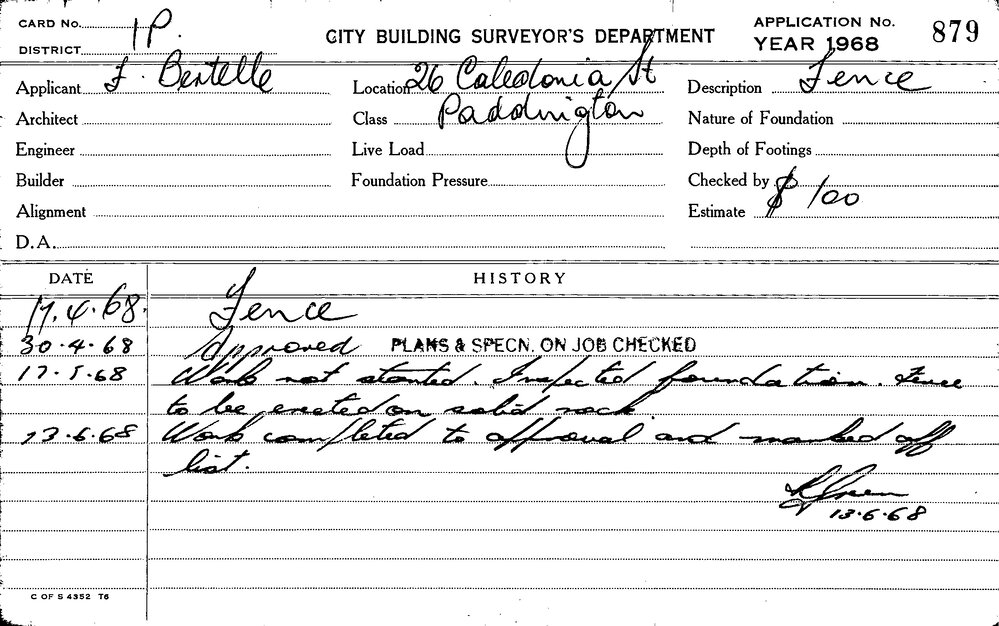 CARD No. 1P.
DISTRICT
CITY BUILDING SURVEYOR'S DEPARTMENT
APPLICATION No. 879
YEAR 1968
Applicant F. Bertelle
Location 26 Caledonia St
Description Fence
Architect
Class Paddington
Nature of Foundation
Engineer
Live Load
Depth of Footings
Builder
Foundation Pressure
Checked by
Alignment
Estimate $ 100
D.A.
DATE HISTORY
17.4.68. Fence
30.4.68 Approved PLANS & SPECN. ON JOB CHECKED
17.5.68 Work not started. Inspected foundation. Fence
to be erected on solid rock.
13.6.68 Work completed to approval and marked off
list.
13.6.68
C OF S 4352 T6